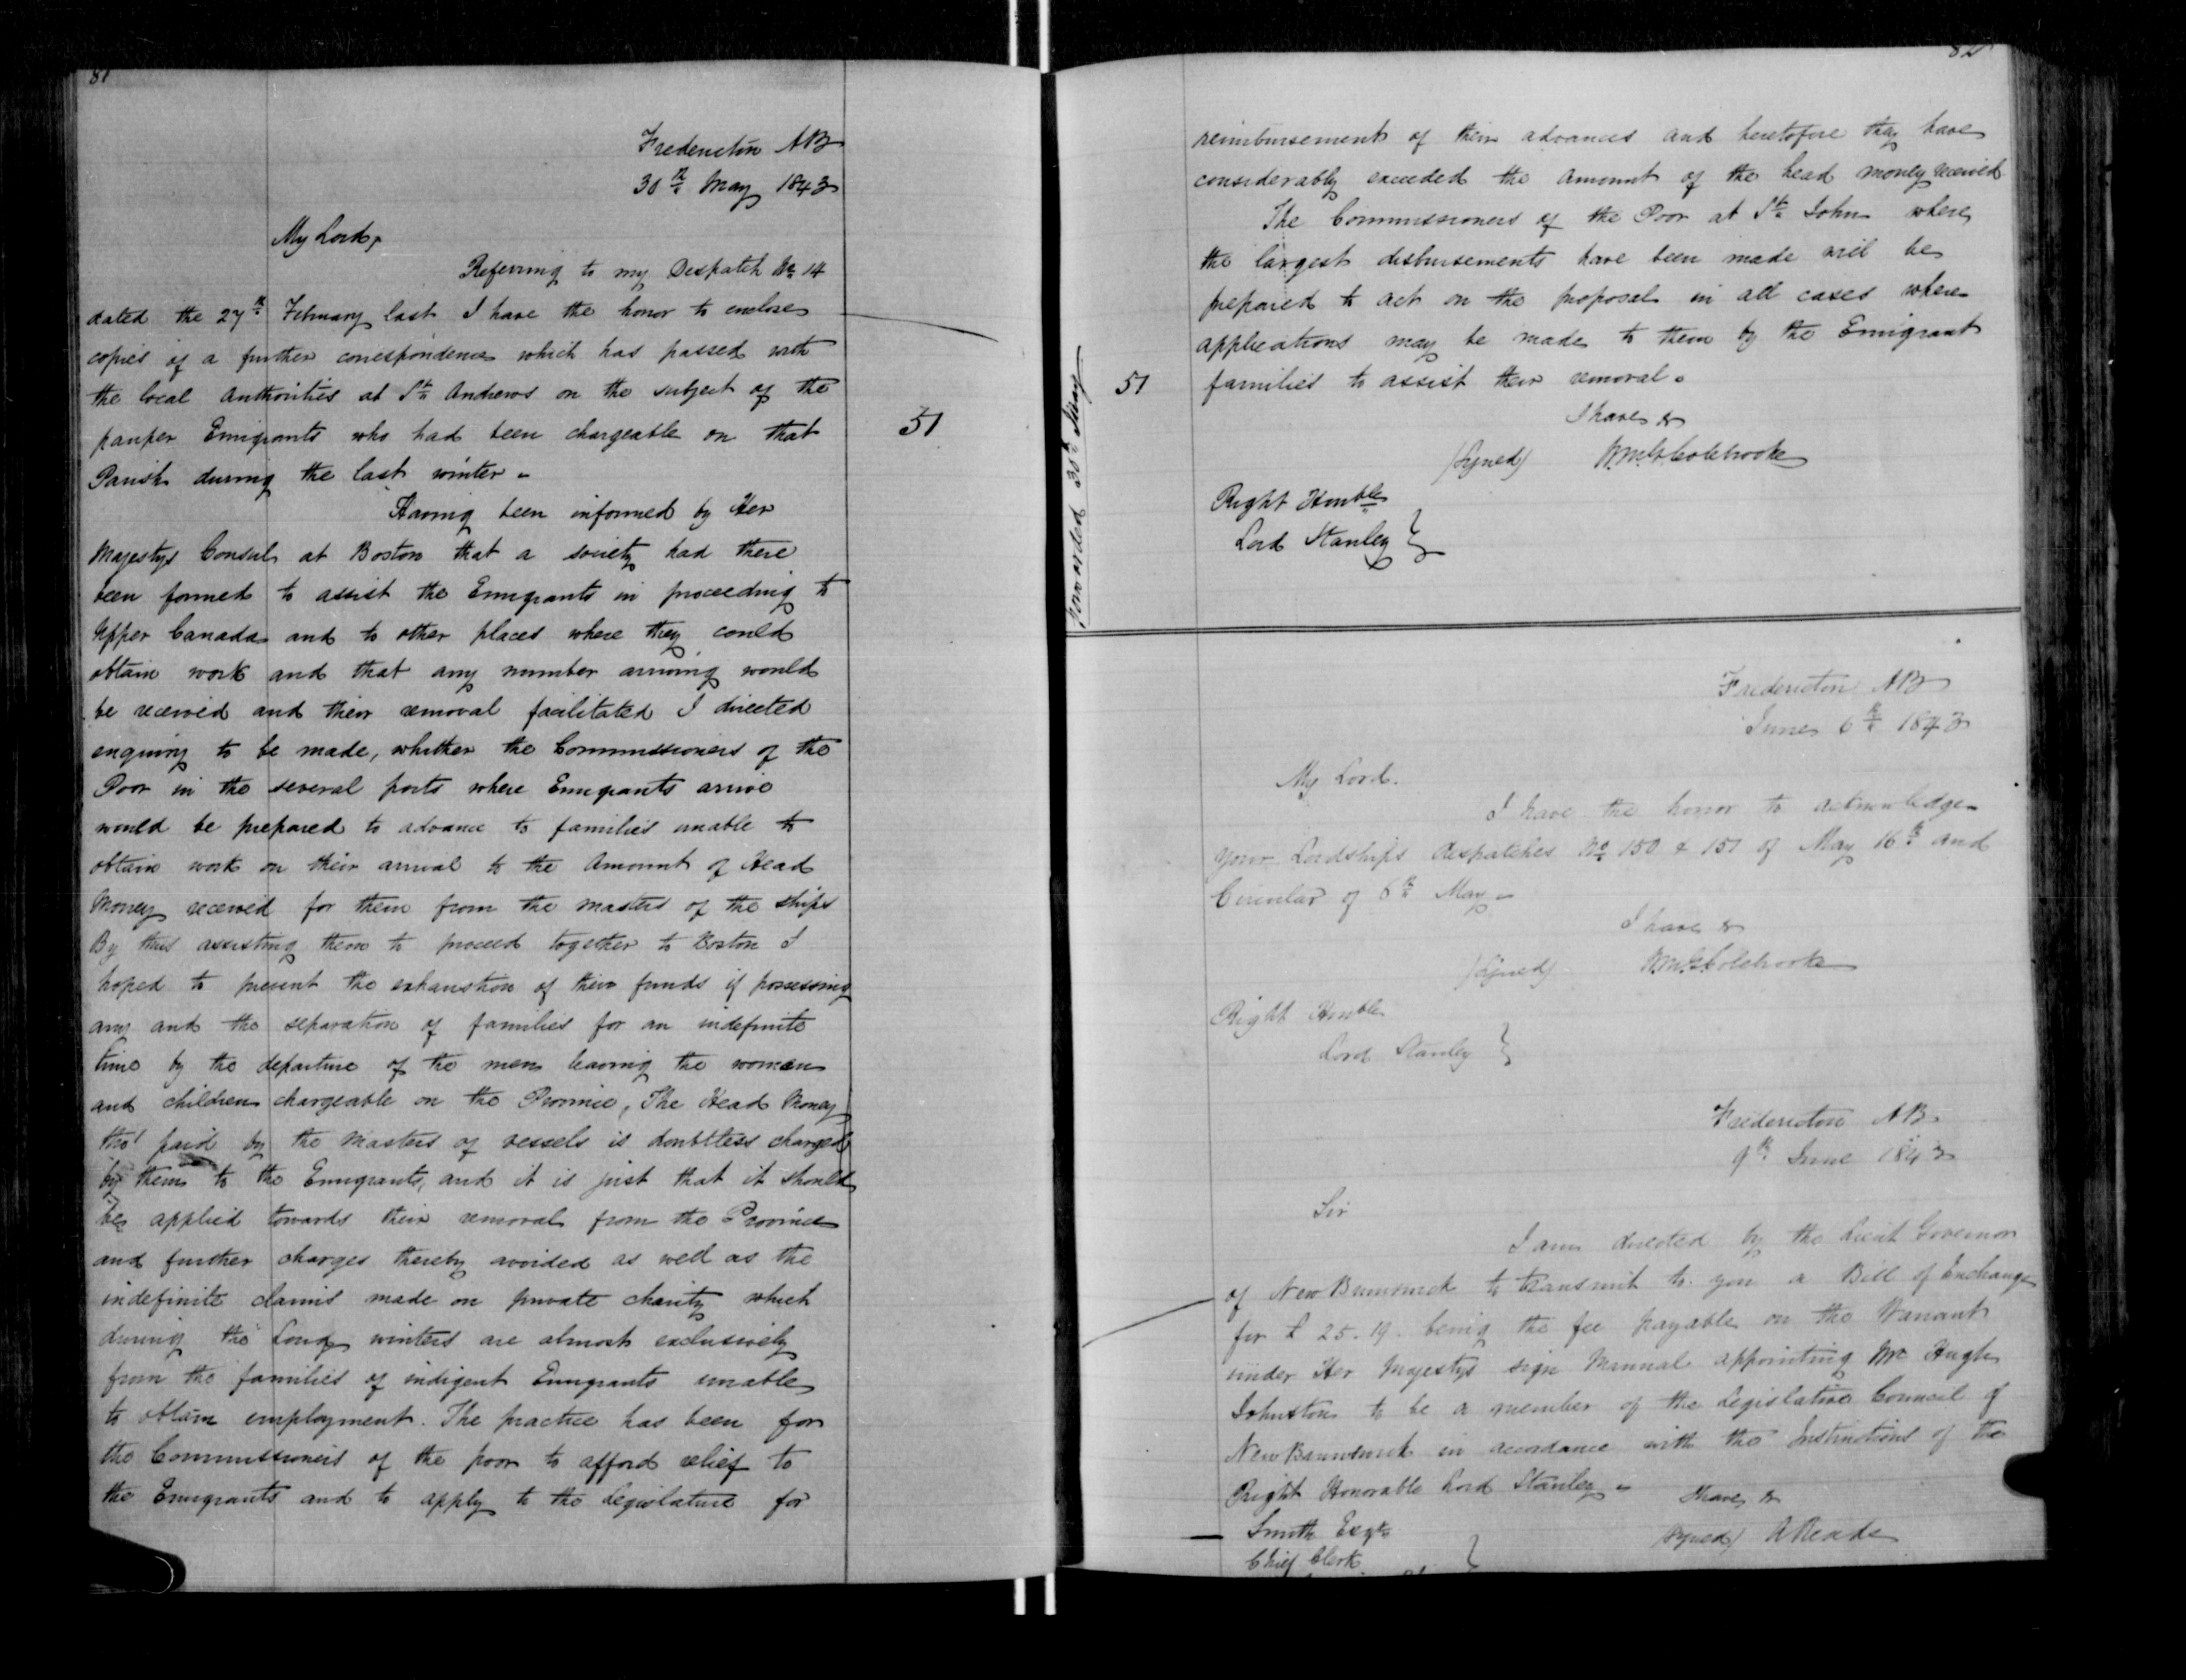 81
Fredericton NB
30th May 1843
My Lord,
Referring to my Despatch No 14
dated the 27th February last I have the honor to enclose
copies of a further correspondence which has passed with
the local Authorities at St Andrews on the subject of the
pauper Emigrants who had been chargeable on that
51
Parish during the last winter -
Having been informed by Her
Majestys Consul at Boston that a society had there
been formed to assist the Emigrants in proceeding to
Upper Canada and to other places where they could
obtain work and that any number arriving would
be received and their removal facilitated I directed
enquiry to be made, whether the Commissioners of the
Poor in the several ports where Emigrants arrive
would be prepared to advance to families unable to
obtain work on their arrival to the Amount of Head
Money received for them from the masters of the ships
By thus assisting them to proceed together to Boston I
hoped to prevent the exhaustion of their funds if possessing
any and the separation of families for an indefinite
time by the departure of the men leaving the women
and children chargeable on the Province, The Head Money
tho' paid by the Masters of vessels is doubtless charged
by them to the Emigrants, and it is just that it should
be applied towards their removal from the Province
and further charges thereby avoided as well as the
indefinite claims made on private charity which
during the Long winters are almost exclusively
from the families of indigent Emigrants unable
to obtain employment. The practice has been for
the Commissioners of the poor to afford relief to
the Emigrants and to apply to the Legislature for
82
reimbursement of their advances and heretofore they have
considerably exceeded the Amount of the head money received
The Commissioners of the Poor at St John where
the largest disbursements have been made will be
prepared to act on the proposal in all cases where
applications may be made to them by the Emigrant
51
families to assist their removal.
Forwarded 30th May
I have &
(Signed) Wm G Colebrooke
Right Honble
Lord Stanley
Fredericton NB
June 6th 1843
My Lord.
I have the honor to acknowledge
your Lordships despatches No 150 & 151 of May 16th and
Circular of 6th May -
I have &
(Signed) Wm G Colebrooke
Right Honble
Lord Stanley
Fredericton NB.
9th June 1843
Sir
I am directed by the Lieut Governor
of New Brunswick to transmit to you a Bill of Exchange
for £ 25. 19. being the fee payable on the Warrant
under Her Majestys sign Manual appointing Mr Hugh
Johnston to be a member of the Legislative Council of
New Brunswick in accordance with the Instructions of the
Right Honorable Lord Stanley -
I have &
Smith Esqre
(Signed) R Reade
Chief Clerk